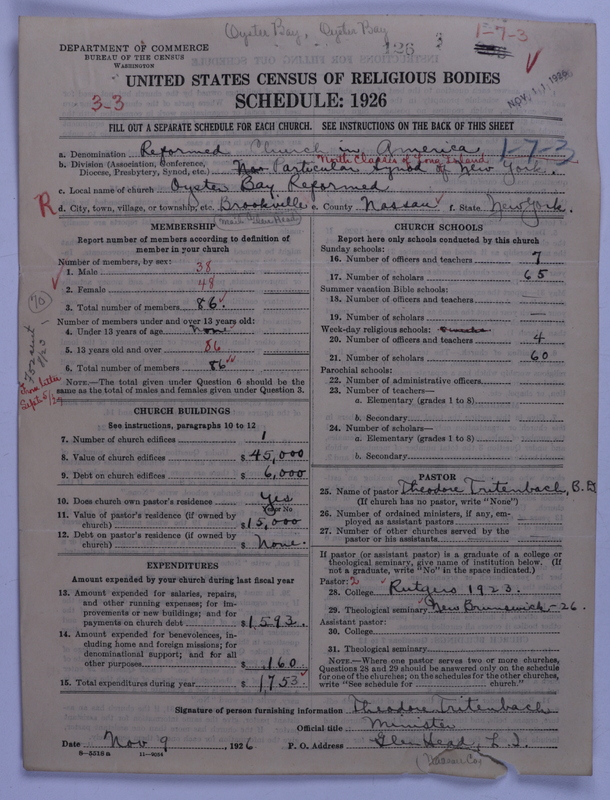 Oyster Bay, Oyster Bay
126 3
1-7-3
DEPARTMENT OF COMMERCE
BUREAU OF THE CENSUS
WASHINGTON
UNITED STATES CENSUS OF RELIGIOUS BODIES
NOV 11 1926
3-3
SCHEDULE: 1926
FILL OUT A SEPARATE SCHEDULE FOR EACH CHURCH. SEE INSTRUCTIONS ON THE BACK OF THIS SHEET
a. Denomination Reformed Church in America
1-7-3
North Classis of Long Island
b. Division (Association, Conference, Diocese, Presbytery, Synod, etc.) Particular Synod of New York.
c. Local name of church Oyster Bay Reformed
R d. City, town, village, or township, etc. Brookville e. County Nassau f. State New York.
(mail Glen Head)
MEMBERSHIP
Report number of members according to definition of member in your church
Number of members, by sex:
1. Male 38
2. Female 48
3. Total number of members 86
Number of members under and over 13 years old:
4. Under 13 years of age none
5. 13 years old and over 86
6. Total number of members 86
NOTE.—The total given under Question 6 should be the same as the total of males and females given under Question 3.
(70)
CHURCH BUILDINGS
See instructions, paragraphs 10 to 12
7. Number of church edifices 1
8. Value of church edifices $45,000
9. Debt on church edifices $6,000
10. Does church own pastor's residence Yes
Yes or No
11. Value of pastor's residence (if owned by church) $15,000
12. Debt on pastor's residence (if owned by church) $ None.
EXPENDITURES
Amount expended by your church during last fiscal year
13. Amount expended for salaries, repairs, and other running expenses; for improvements or new buildings; and for payments on church debt $1593.
14. Amount expended for benevolences, including home and foreign missions; for denominational support; and for all other purposes $ 160
15. Total expenditures during year $1753
CHURCH SCHOOLS
Report here only schools conducted by this church
Sunday schools:
16. Number of officers and teachers 7
17. Number of scholars 65
Summer vacation Bible schools:
18. Number of officers and teachers —
19. Number of scholars —
Week-day religious schools:
20. Number of officers and teachers 4
21. Number of scholars 60
Parochial schools:
22. Number of administrative officers
23. Number of teachers—
a. Elementary (grades 1 to 8)
b. Secondary
24. Number of scholars—
a. Elementary (grades 1 to 8)
b. Secondary
PASTOR
25. Name of pastor Theodore Tritenbach, B.D.
(If church has no pastor, write "None")
26. Number of ordained ministers, if any, employed as assistant pastors
27. Number of other churches served by the pastor or his assistants
If pastor (or assistant pastor) is a graduate of a college or theological seminary, give name of institution below. (If not a graduate, write "No" in the space indicated.)
Pastor: 2
28. College Rutgers 1923.
29. Theological seminary New Brunswick - 26.
Assistant pastor:
30. College
31. Theological seminary
NOTE.—Where one pastor serves two or more churches, Questions 28 and 29 should be answered only on the schedule for one of the churches; on the schedules for the other churches, write "See schedule for church."
Signature of person furnishing information Theodore Tritenbach
Official title Minister
Date Nov 9, 1926 P. O. Address Glen Head, L. I.
(Nassau Co)
8—5518a 11—9034